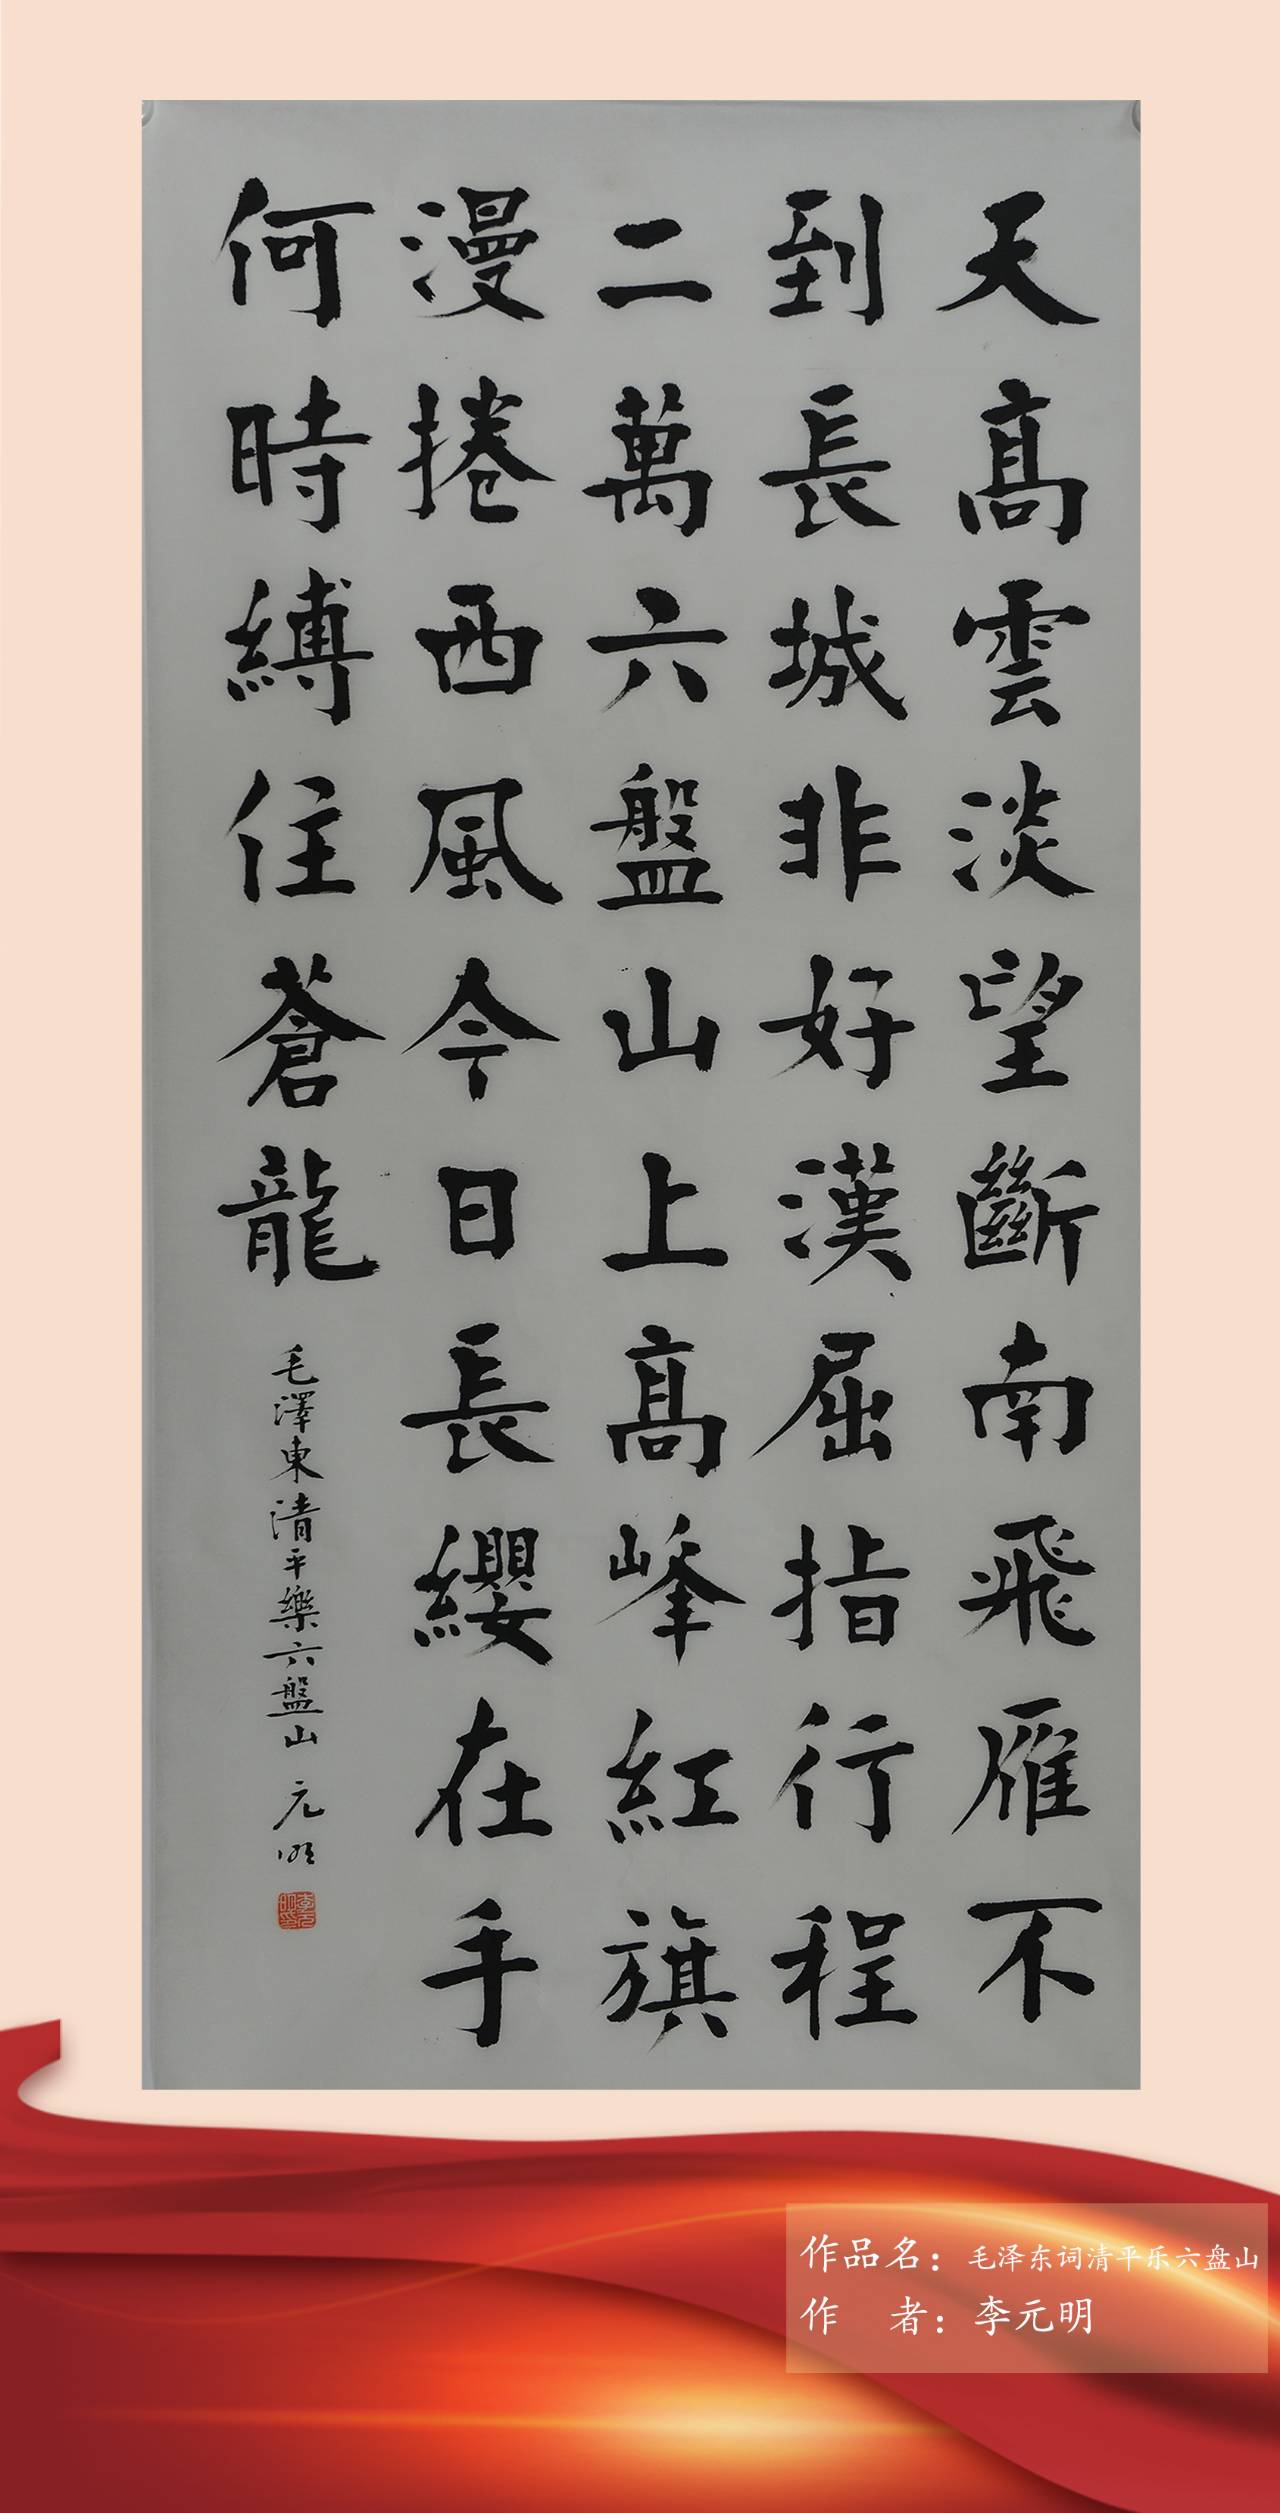 天高雲淡望斷南飛雁不
到長城非好漢屈指行程
二萬六盤山上高峰紅旗
漫捲西風今日長纓在手
何時縛住蒼龍
毛澤東清平樂六盤山 元明
李元明印
作品名：毛泽东词清平乐六盘山
作 者：李元明